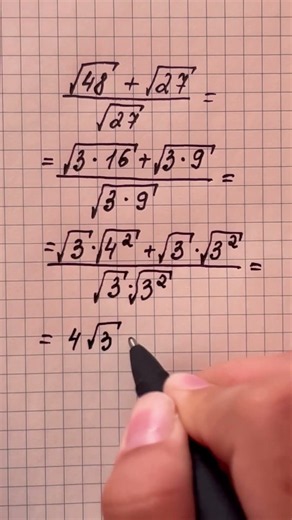 (√48 + √27)/√27 =
= (√(3·16) + √(3·9))/√(3·9) =
= (√3·√(4²) + √3·√(3²))/(√3·√(3²)) =
= 4√3